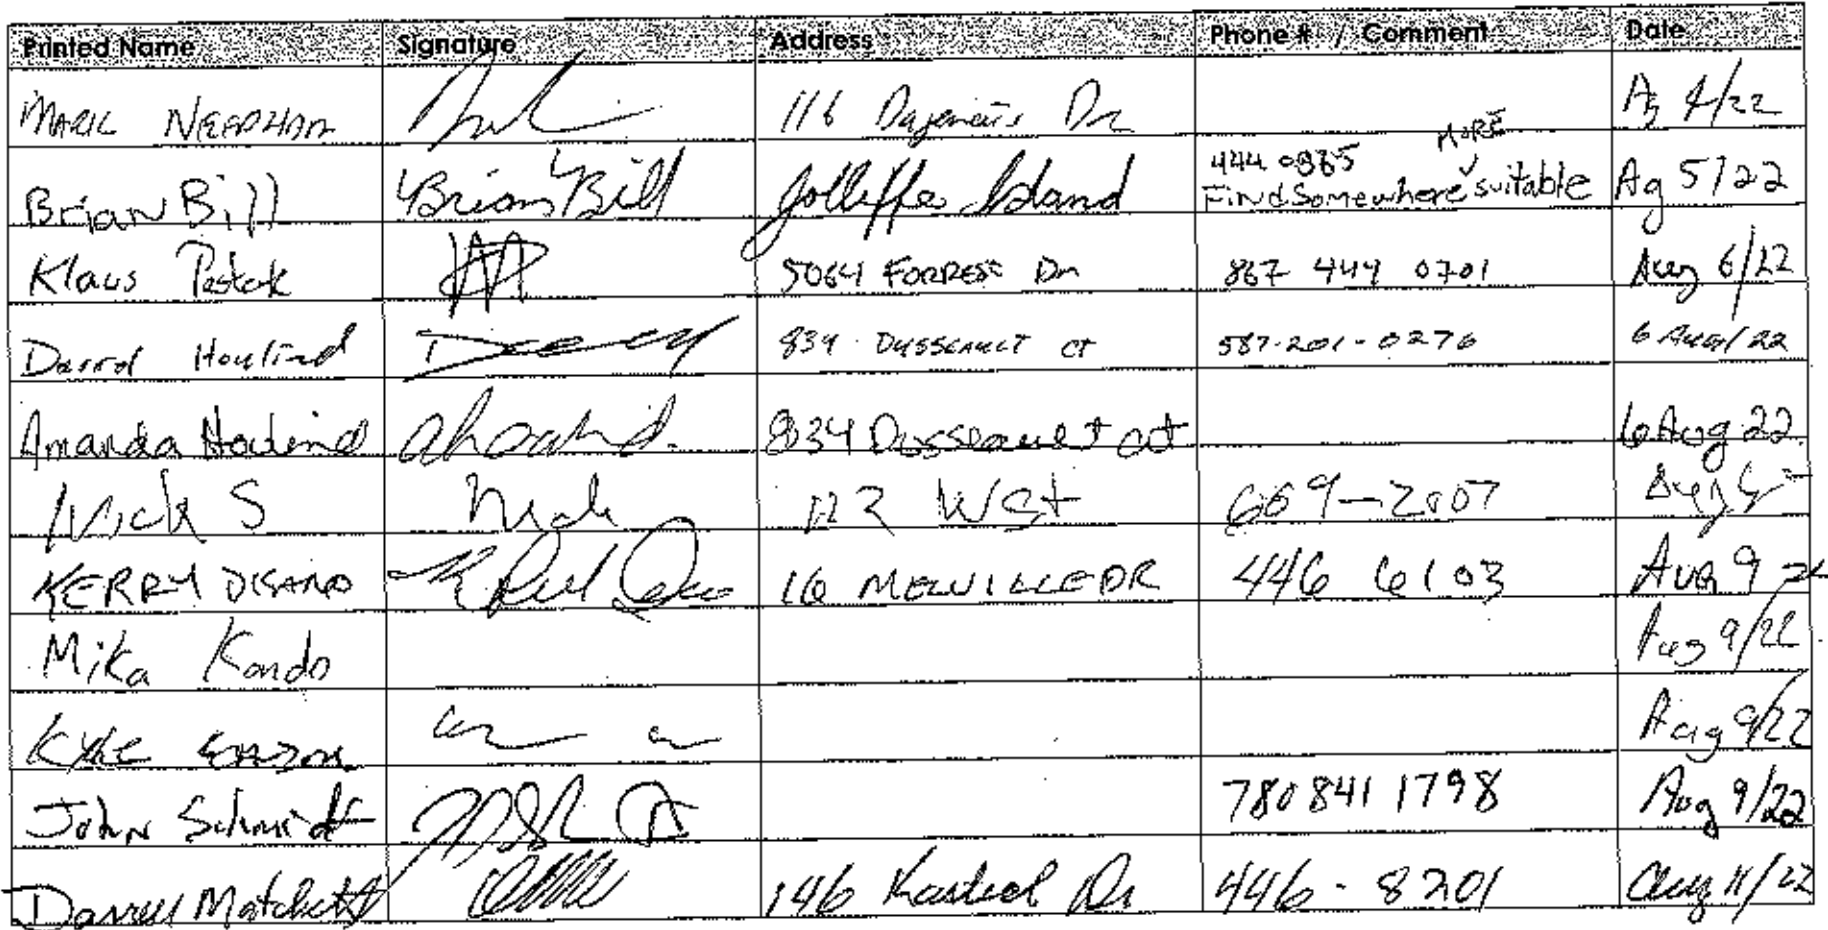 Printed Name Signature Address Phone # / Comment Date
MARK NEEDHAM 116 Dagenais Dr Ag 4/22
Brian Bill Brian Bill Jolliffe Island 444 0865 Find Somewhere MORE suitable Ag 5/22
Klaus 5064 FORREST Dr 867 444 0701 Aug 6/22
Darrol Houlind 834 DUSSEAULT CT 587-201-0276 6 Aug/22
Amanda Houlind ahoulind. 834 Dusseault crt 6 Aug 22
Nick S Nick WSt 669-2007 Aug
KERRY 16 MELVILLE DR 446 6103 Aug 9
Mika Kondo Aug 9/22
KYLE Aug 9/22
John Schmidt 780 841 1798 Aug 9/22
Darrell Matchett 146 Dr 446-8201 Aug 11/22